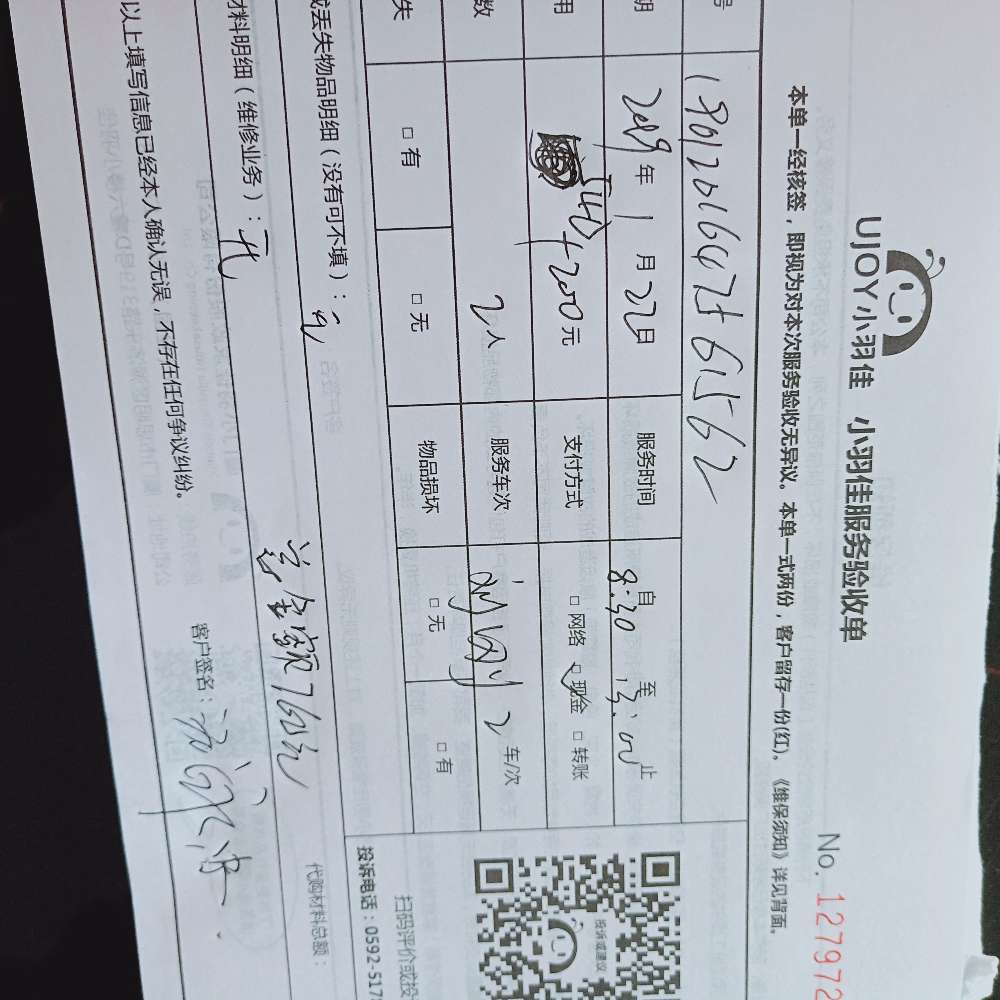 UJOY小羽佳 小羽佳服务验收单
No. 127972
本单一经核签，即视为对本次服务验收无异议。本单一式两份，客户留存一份(红)。《维保须知》详见背面。
号
期 2019年1月22日 服务时间 自 8:30 至 止
用 540+200元 支付方式 □网络 □现金 □转账
数 2人 服务车次 2 车/次
失 □有 □无 物品损坏 □无 □有
投诉或建议
扫码评价或投
投诉电话：0592-517
丢失物品明细（没有可不填）：无
总金额760元
代购材料总额：
材料明细（维修业务）：无
以上填写信息已经本人确认无误，不存在任何争议纠纷。
客户签名：